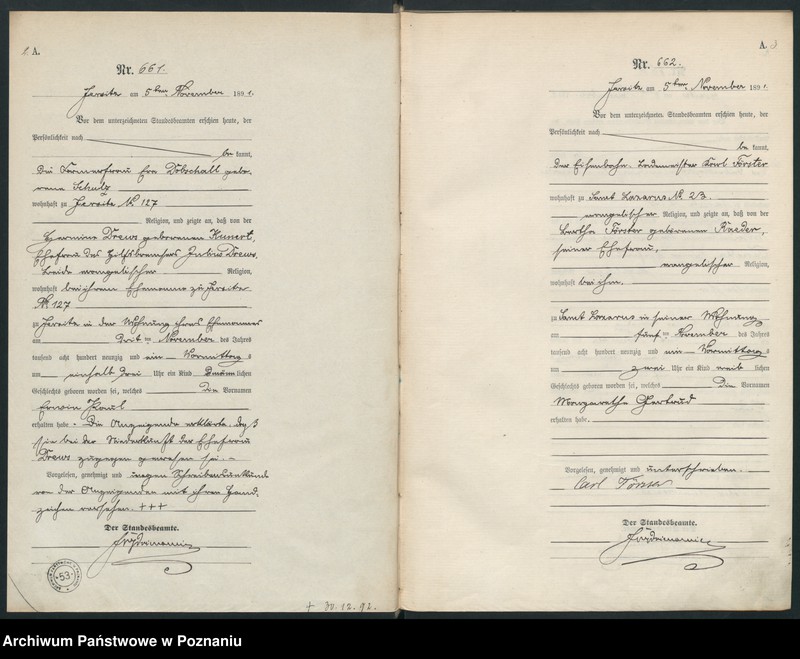 A.
Nr. 661.
Jersitz am 5ten November 1891.
Vor dem unterzeichneten Standesbeamten erschien heute, der
Persönlichkeit nach
be kannt,
die Farmerfrau Eva Dobschall gebo-
rene Schulz
wohnhaft zu Jersitz № 127
Religion, und zeigte an, daß von der
Hermine Drews geborenen Kunert,
Ehefrau des Hilfsbremsers Julius Drews,
beide evangelischer Religion,
wohnhaft bei ihrem Ehemanne zu Jersitz
№ 127
zu Jersitz in der Wohnung ihres Ehemannes
am drit ten November des Jahres
tausend acht hundert neunzig und ein Vormittag s
um einhalb drei Uhr ein Kind lichen
Geschlechts geboren worden sei, welches Die Vornamen
Erwin Paul
erhalten habe. Die Anzeigende erklärte, daß
sie bei der Niederkunft der Ehefrau
Drews zugegen gewesen sei. –
Vorgelesen, genehmigt und wegen Schreibensunkunde
von der Anzeigenden mit ihrem Hand-
zeichen versehen. +++
Der Standesbeamte.
53
+ 30.12.92.
A.
Nr. 662.
Jersitz am 5ten November 1891.
Vor dem unterzeichneten Standesbeamten erschien heute, der
Persönlichkeit nach
be kannt,
der Eisenbahn-Lademeister Karl Förster
wohnhaft zu Sanct Lazarus № 23.
evangelischer Religion, und zeigte an, daß von der
Bertha Förster geborenen Raeder,
seiner Ehefrau,
evangelischer Religion,
wohnhaft bei ihm.
zu Sanct Lazarus in seiner Wohnung
am fünf ten November des Jahres
tausend acht hundert neunzig und ein Vormittag s
um zwei Uhr ein Kind weib lichen
Geschlechts geboren worden sei, welches Die Vornamen
Margarethe Gertrud
erhalten habe.
Vorgelesen, genehmigt und unterschrieben.
Carl Förster
Der Standesbeamte.
Archiwum Państwowe w Poznaniu